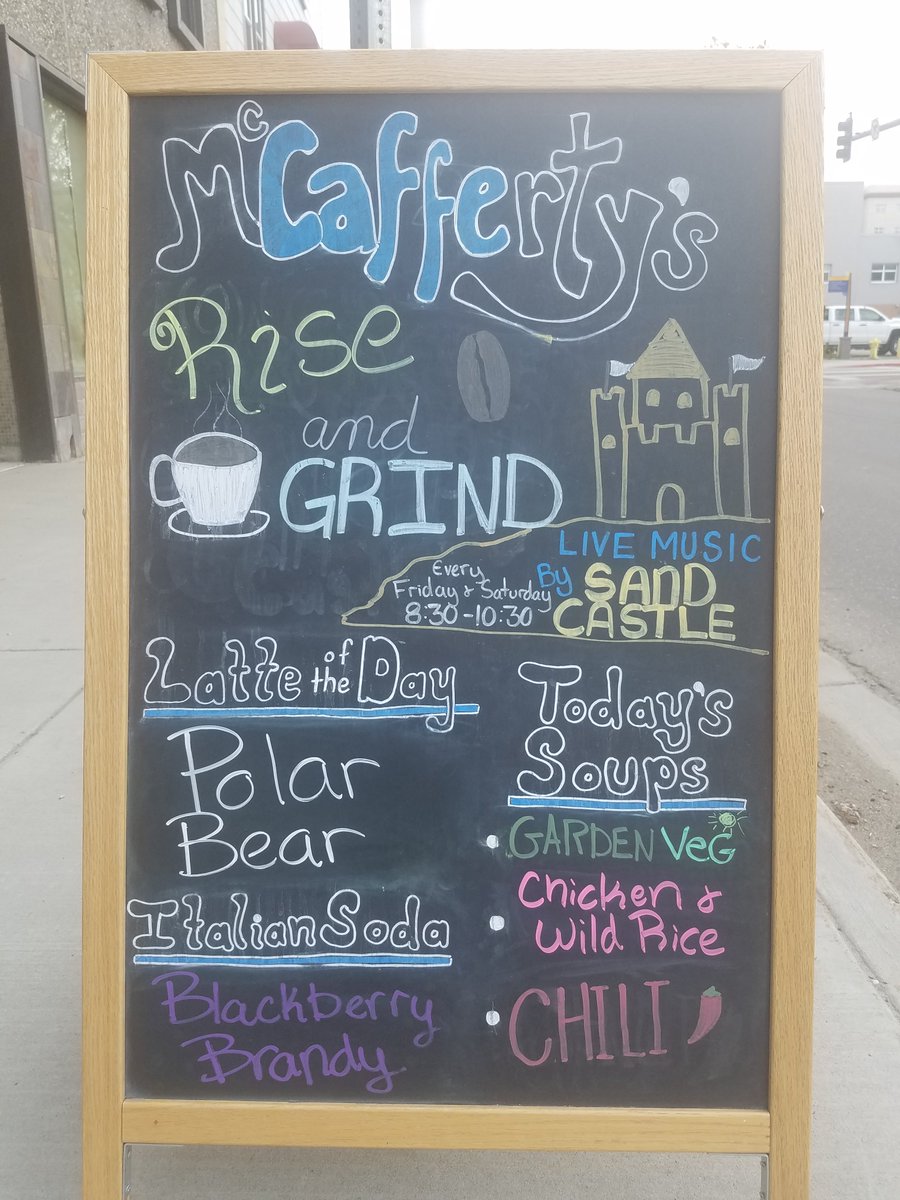 McCafferty's
Rise
and
GRIND
LIVE MUSIC
By SAND
CASTLE
Every
Friday & Saturday
8:30-10:30
Latte of the Day
Polar
Bear
Italian Soda
Blackberry
Brandy
Today's
Soups
• GARDEN VeG
• Chicken &
Wild Rice
• CHILI